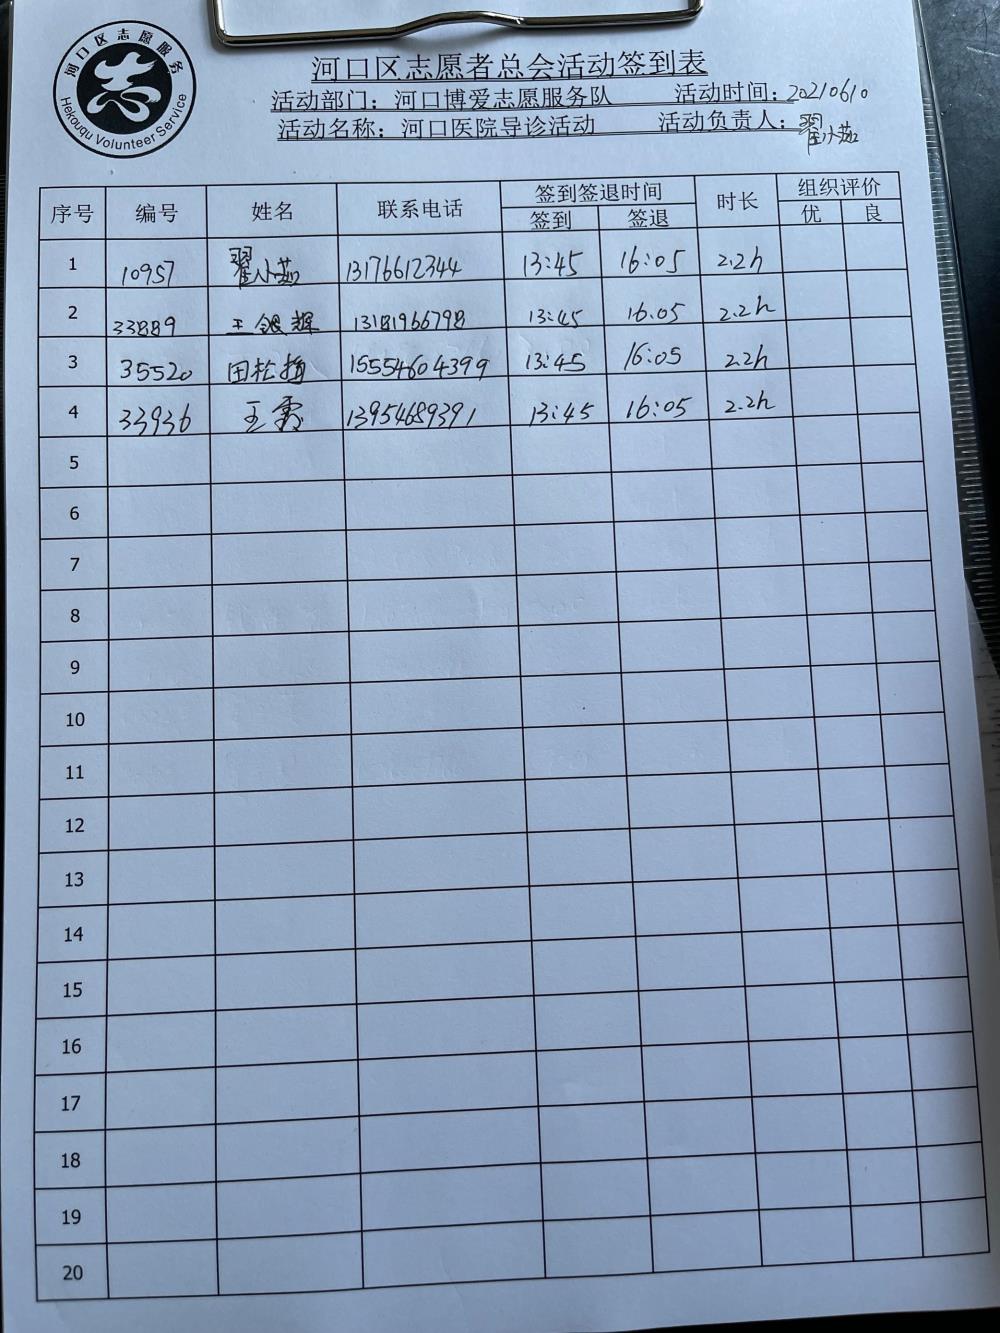 河口区志愿服务
Hekouqu Volunteer Service
河口区志愿者总会活动签到表
活动部门：河口博爱志愿服务队 活动时间：20210610
活动名称：河口医院导诊活动 活动负责人：翟小茹
序号 编号 姓名 联系电话 签到签退时间 时长 组织评价
签到 签退 优 良
1 10957 翟小茹 13176612344 13:45 16:05 2.2h
2 33889 王银辉 13181966798 13:45 16:05 2.2h
3 35520 田松梅 15554604399 13:45 16:05 2.2h
4 33936 王霞 13954689391 13:45 16:05 2.2h
5
6
7
8
9
10
11
12
13
14
15
16
17
18
19
20